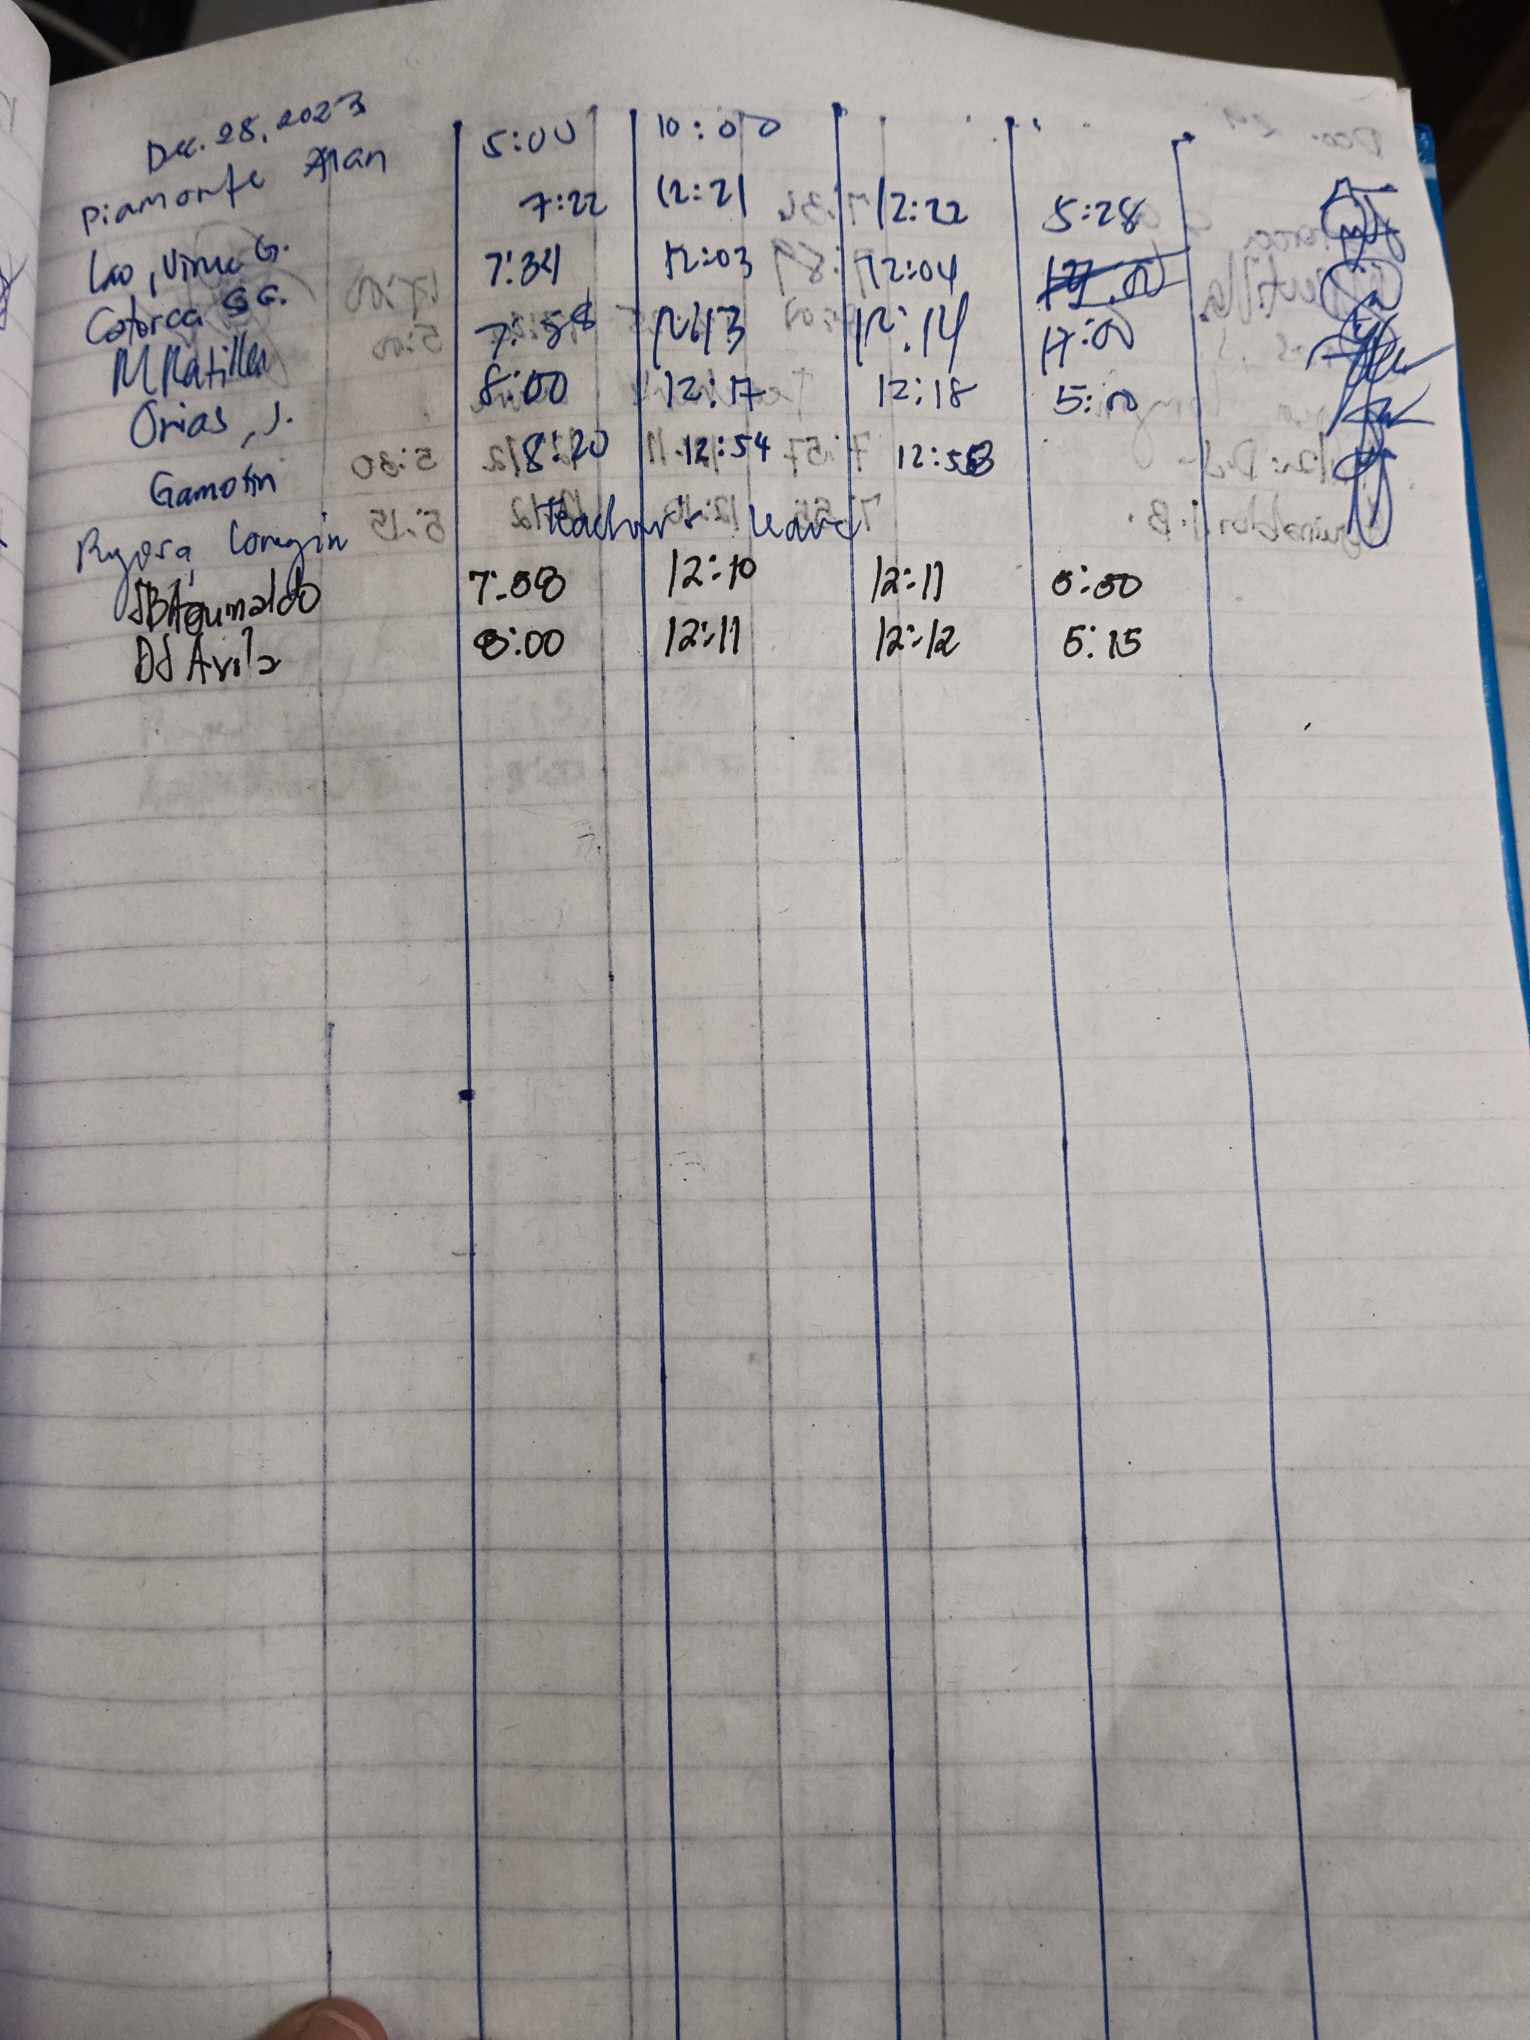 Dec. 28, 2023
Piamonte Alan 5:00 10:00
Lao, Virnie G. 7:22 12:21 12:22 5:28
Catorca SG. 7:34 12:03 12:04 17:00
M Matilla 7:58 12:13 12:14 17:00
Orias, J. 8:00 12:17 12:18 5:00
Gamotin 8:20 12:54 12:58
Teacher's Leave
JB Aguinaldo 7:58 12:10 12:11 5:30
DJ Avila 8:00 12:11 12:12 5:15